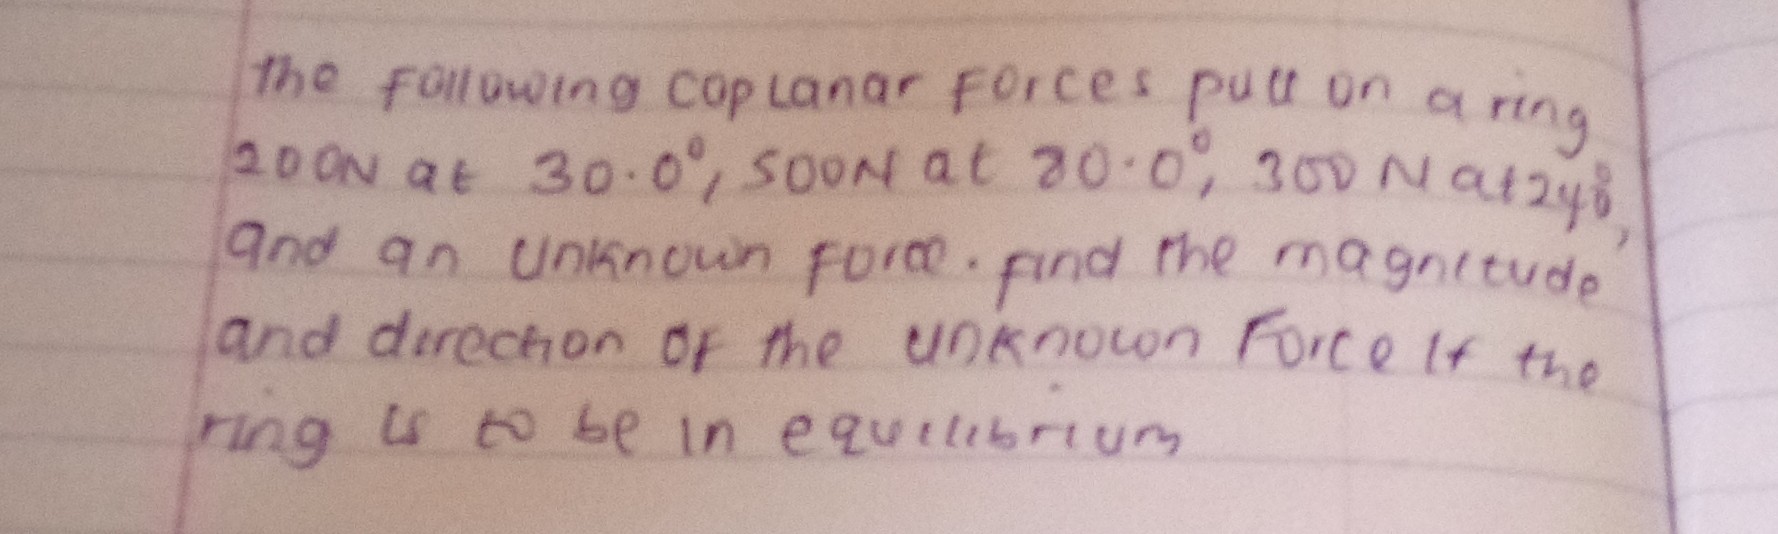 The following coplanar forces pull on a ring
200N at 30.0°, 500N at 80.0°, 300 N at 240°,
and an unknown force. find the magnitude
and direction of the unknown Force If the
ring is to be in equilibrium